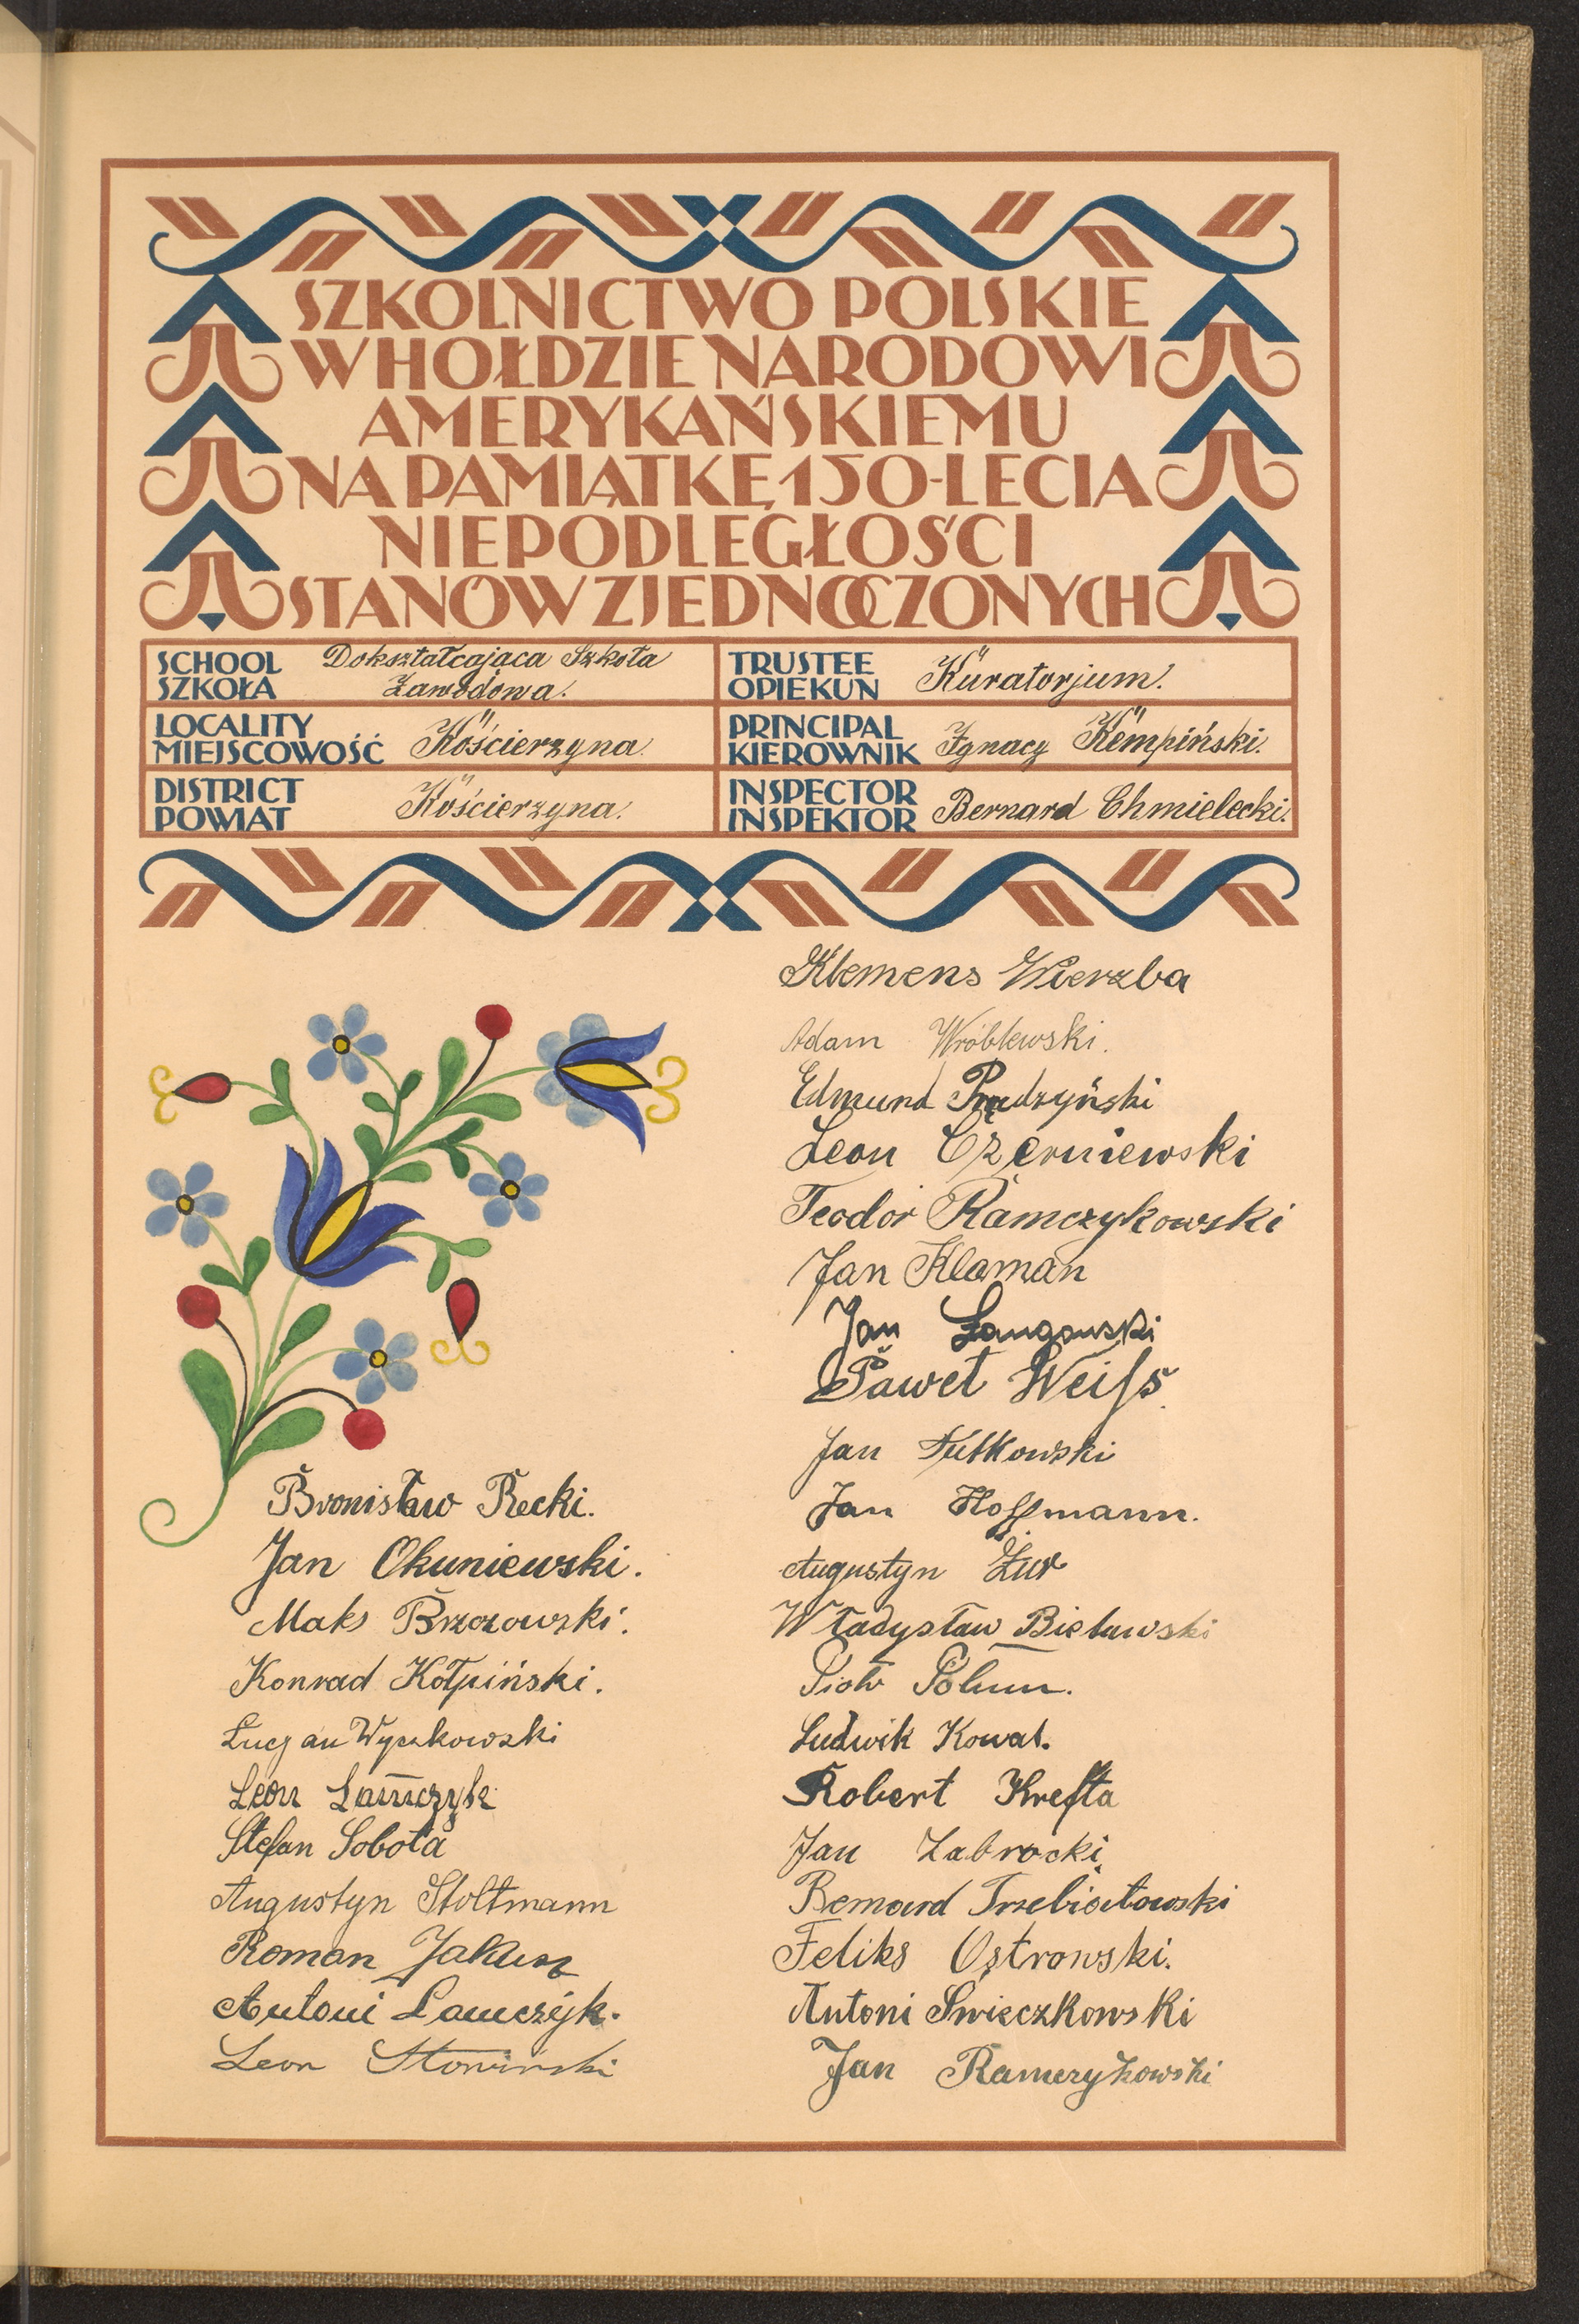 SZKOLNICTWO POLSKIE
W HOŁDZIE NARODOWI
AMERYKAŃSKIEMU
NA PAMIĄTKĘ 150-LECIA
NIEPODLEGŁOŚCI
STANÓW ZJEDNOCZONYCH
SCHOOL
SZKOŁA
Dokształcająca Szkoła
Zawodowa.
TRUSTEE
OPIEKUN
Kuratorjum.
LOCALITY
MIEJSCOWOŚĆ
Kościerzyna.
PRINCIPAL
KIEROWNIK
Ignacy Kempiński.
DISTRICT
POWIAT
Kościerzyna.
INSPECTOR
INSPEKTOR
Bernard Chmielecki.
Bronisław Recki.
Jan Okuniewski.
Maks Brzozowski.
Konrad Kołpiński.
Lucjan Wyczkowski
Leon Lamczyk
Stefan Sobota
Augustyn Stoltmann
Roman Jakusz
Antoni Lamczyk.
Leon Słowiński
Klemens Wierzba
Adam Wróblewski.
Edmund Prądzyński
Leon Czerniewski
Teodor Ramczykowski
Jan Klaman
Jan Langowski
Paweł Weiſs
Jan Jutkowski
Jan Hoffmann.
Augustyn Żur
Władysław Bieławski
Piotr
Ludwik Kowal.
Robert Krefta
Jan Zabrocki
Bernard Trzebiatowski
Feliks Ostrowski.
Antoni Święczkowski
Jan Ramczykowski